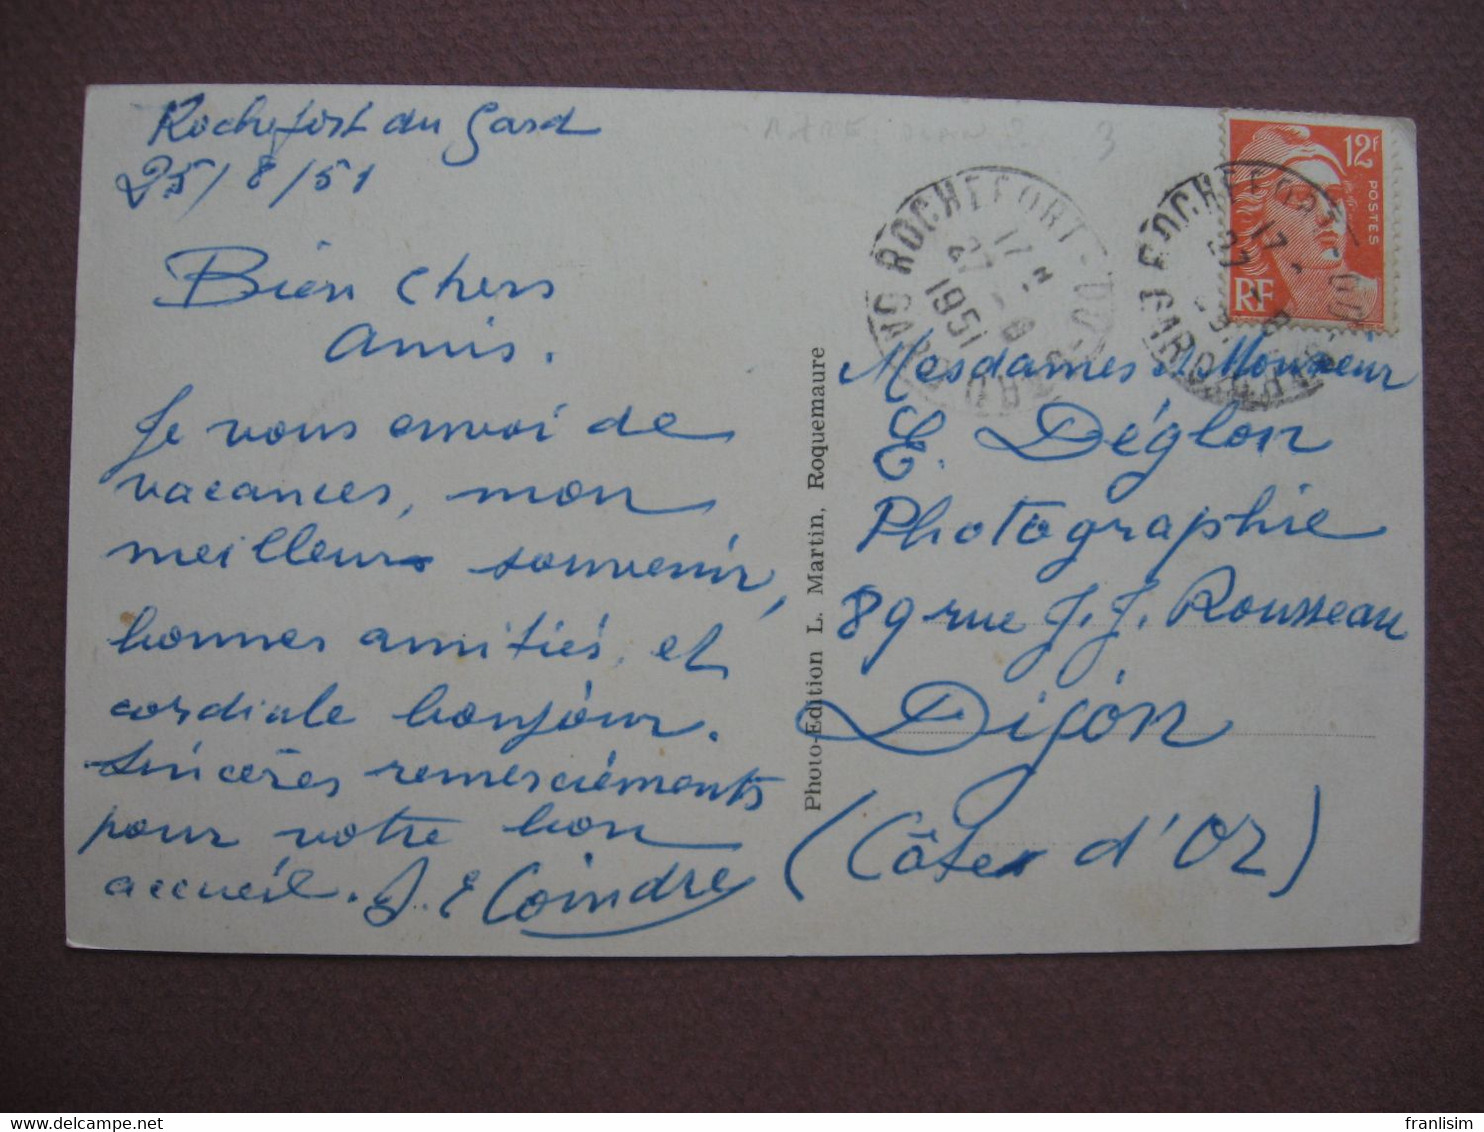 Rochefort du Gard
25/8/51
Bien chers
amis.
Je vous envoi de
vacances, mon
meilleur souvenir,
bonnes amitiés, et
cordiale bonjour.
Sincères remerciements
pour votre bon
accueil. J. E Coindre
Photo-Edition L. Martin, Roquemaure
3
ROCHEFORT-DU-GARD
17 H
27 - 8
1951
GARD
ROCHEFORT-DU-GARD
17
27 - 8
GARD
12F
POSTES
RF
Mesdames & Monsieur
E. Déglon
Photographie
89 rue J. J. Rousseau
Dijon
(Côte d'Or)
delcampe.net
franlisim